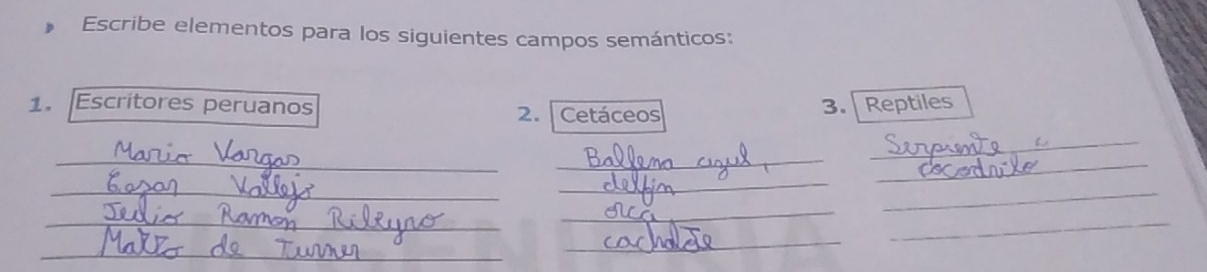 Escribe elementos para los siguientes campos semánticos:
1. Escritores peruanos
Mario Vargas
Cesar Vallejo
Julio Ramon Rileyno
Matto de Turner
2. Cetáceos
Ballena azul,
delfin
orca
cachalote
3. Reptiles
Serpiente
cocodrilo